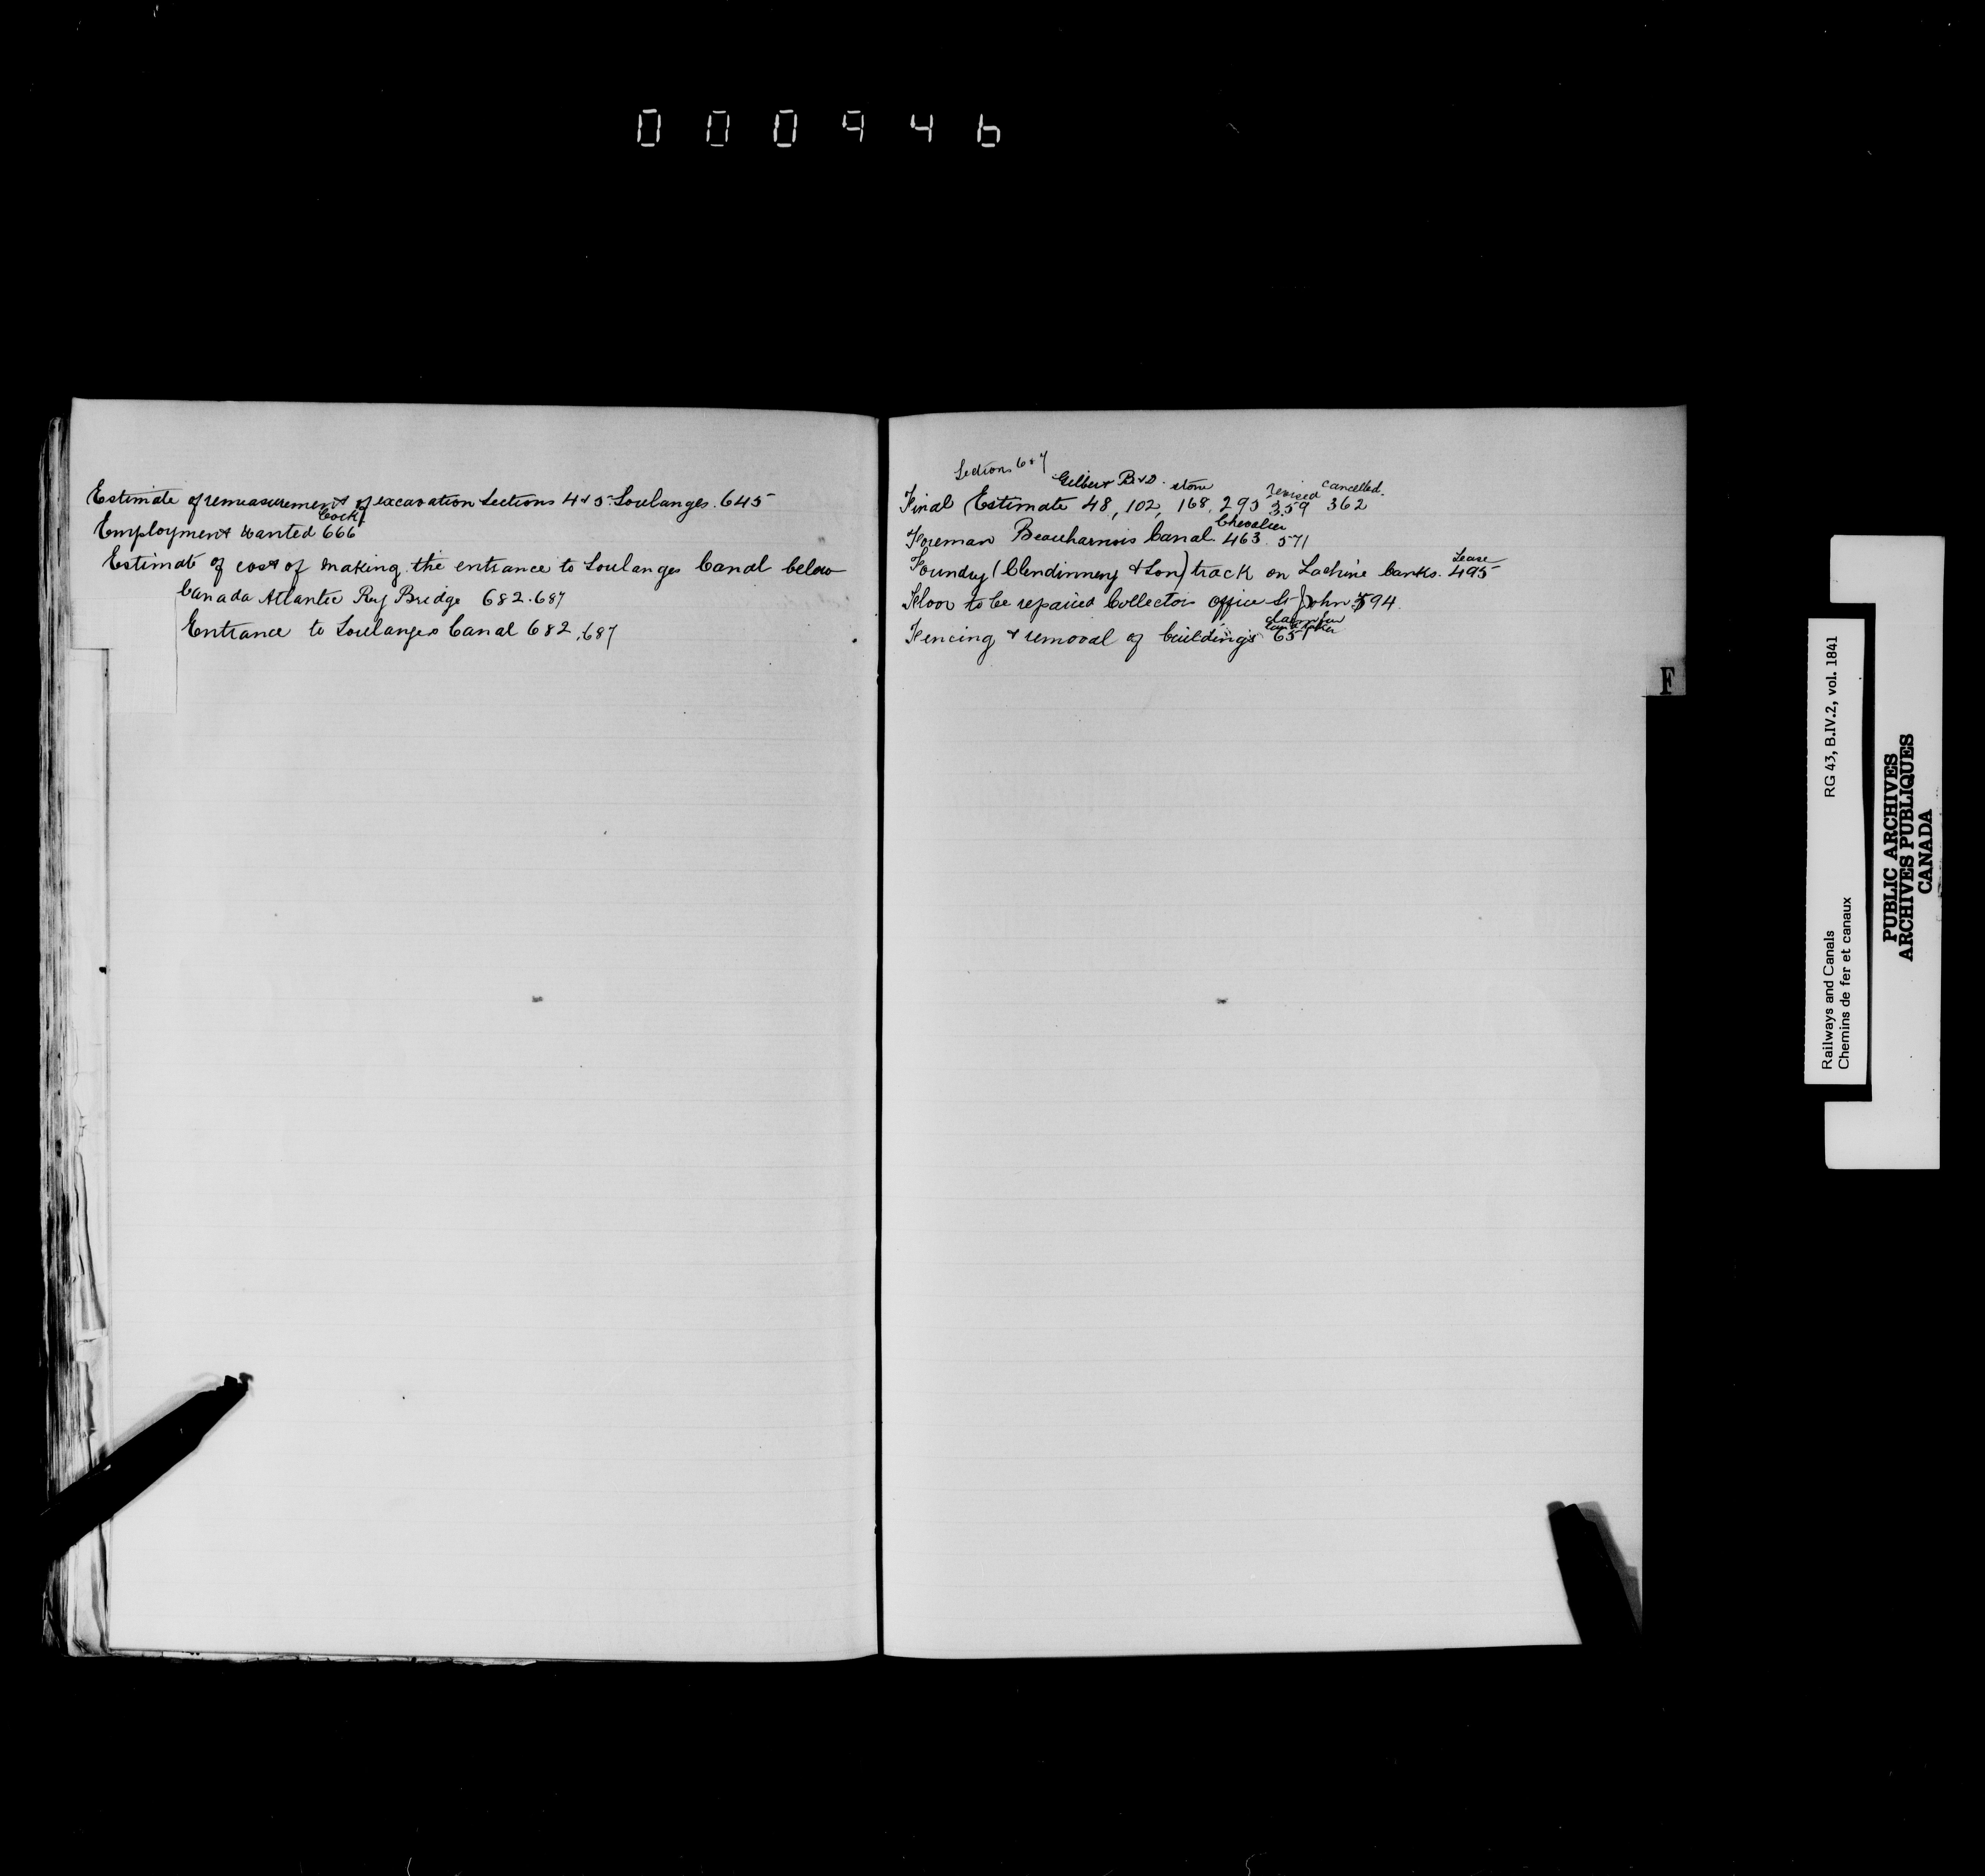 000946
Estimate of remeasurement of excavation Sections 4 & 5 Soulanges. 645
Cock
Employment Wanted 666
Estimate of cost of making the entrance to Soulanges Canal below
Canada Atlantic Ry Bridge 682.687
Entrance to Soulanges Canal 682,687
Sections 6 & 7
Gilbert B&D. stone revised cancelled.
Final Estimate 48, 102, 168, 295 359 362
Chevalier
Foreman Beauharnois Canal. 463. 571
Lease
Foundry (Clendinneng & Son) track on Lachine banks. 495
Floor to be repaired Collectors office St John 594.
Fencing & removal of buildings 651
F
Railways and Canals RG 43, B.IV.2, vol. 1841
Chemins de fer et canaux
PUBLIC ARCHIVES
ARCHIVES PUBLIQUES
CANADA